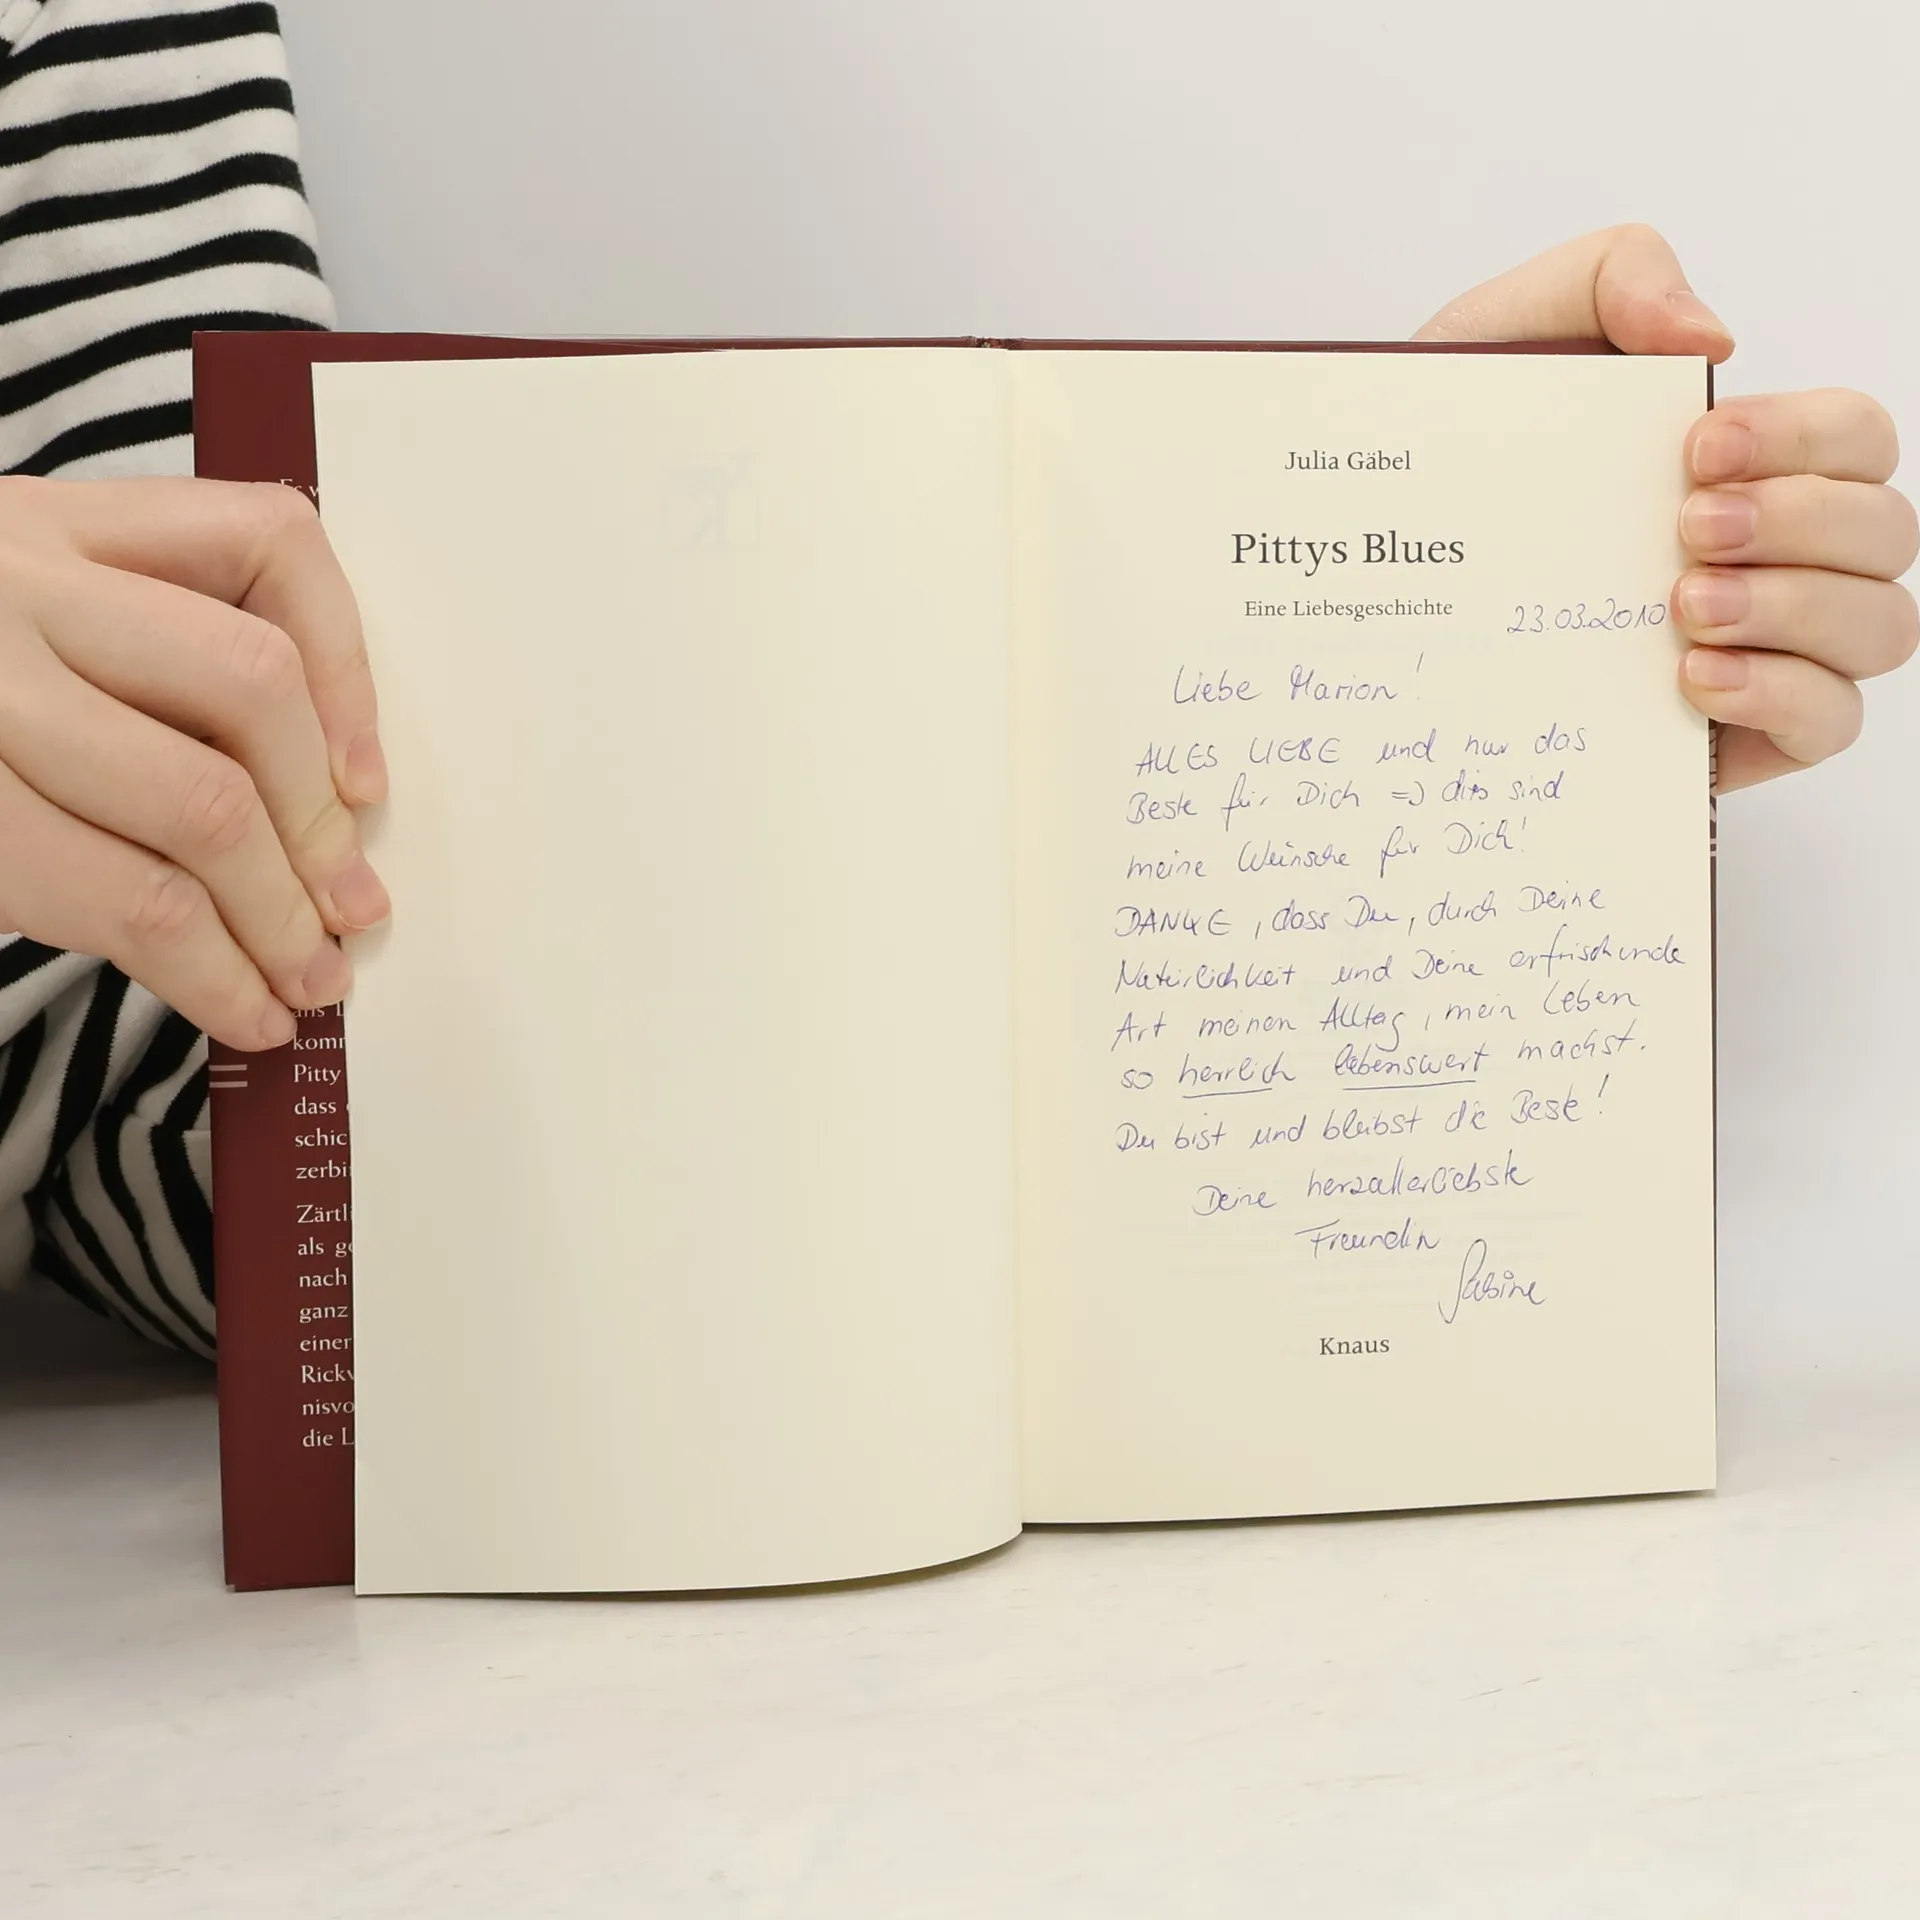 Es w
ans L
komm
Pitty
dass
schic
zerbi
Zärtli
als ge
nach
ganz
einer
Rickv
nisvo
die L
Julia Gäbel
Pittys Blues
Eine Liebesgeschichte
23.03.2010
Liebe Marion!
ALLES LIEBE und nur das
Beste für Dich => dies sind
meine Wünsche für Dich!
DANKE, dass Du, durch Deine
Natürlichkeit und Deine erfrischende
Art meinen Alltag, mein Leben
so herrlich lebenswert machst.
Du bist und bleibst die Beste!
Deine herzallerliebste
Freundin
Sabine
Knaus